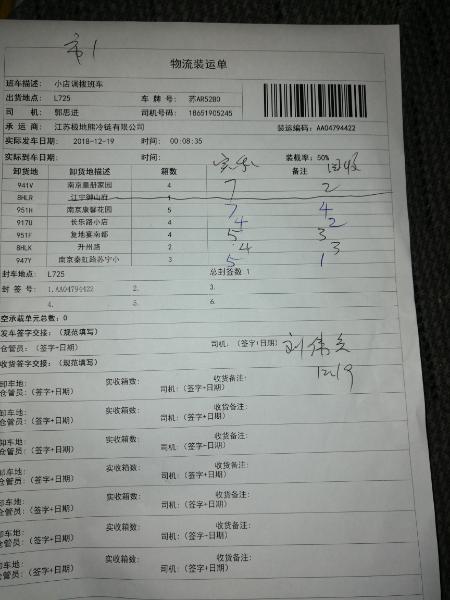 市1
物流装运单
班车描述: 小店调拨班车
出货地点: L725 车 牌 号: 苏AR52B0
司 机: 郭思进 司机号码: 18651905245
承 运 商: 江苏极地熊冷链有限公司 装运编码: AA04794422
实际发车日期: 2018-12-19 时间: 00:08:35
实际到车日期: 时间: 装载率: 50%
卸货地 卸货地描述 箱数 实发 备注 回收
941V 南京皇册家园 4 7 2
8HLR 江宇御山府 1
951H 南京康馨花园 5 7 4
917U 长乐路小店 4 4 2
951F 复地宴南都 4 5 3
8HLK 升州路 2 4 3
947Y 南京秦虹路苏宁小 3 5 1
封车地点: L725 总封签数 1
封 签 号: 1.AA04794422 2. 3.
4. 5. 6.
空承载单元总数: 0
发车签字交接: (规范填写)
仓管员: (签字+日期) 司机: (签字+日期) 刘伟
收货签字交接: (规范填写) 12/19
卸车地: 实收箱数: 收货备注:
仓管员: (签字+日期) 司机: (签字+日期)
卸车地: 实收箱数: 收货备注:
仓管员: (签字+日期) 司机: (签字+日期)
卸车地: 实收箱数: 收货备注:
仓管员: (签字+日期) 司机: (签字+日期)
卸车地: 实收箱数: 收货备注:
仓管员: (签字+日期) 司机: (签字+日期)
卸车地: 实收箱数: 收货备注:
仓管员: (签字+日期) 司机: (签字+日期)
卸车地: 实收箱数: 收货备注:
仓管员: (签字+日期) 司机: (签字+日期)
卸车地: 实收箱数: 收货备注:
仓管员: (签字+日期) 司机: (签字+日期)